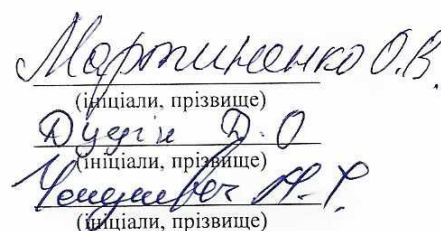 Мартиненко О.В.
(ініціали, прізвище)
Д. О
(ініціали, прізвище)
(ініціали, прізвище)